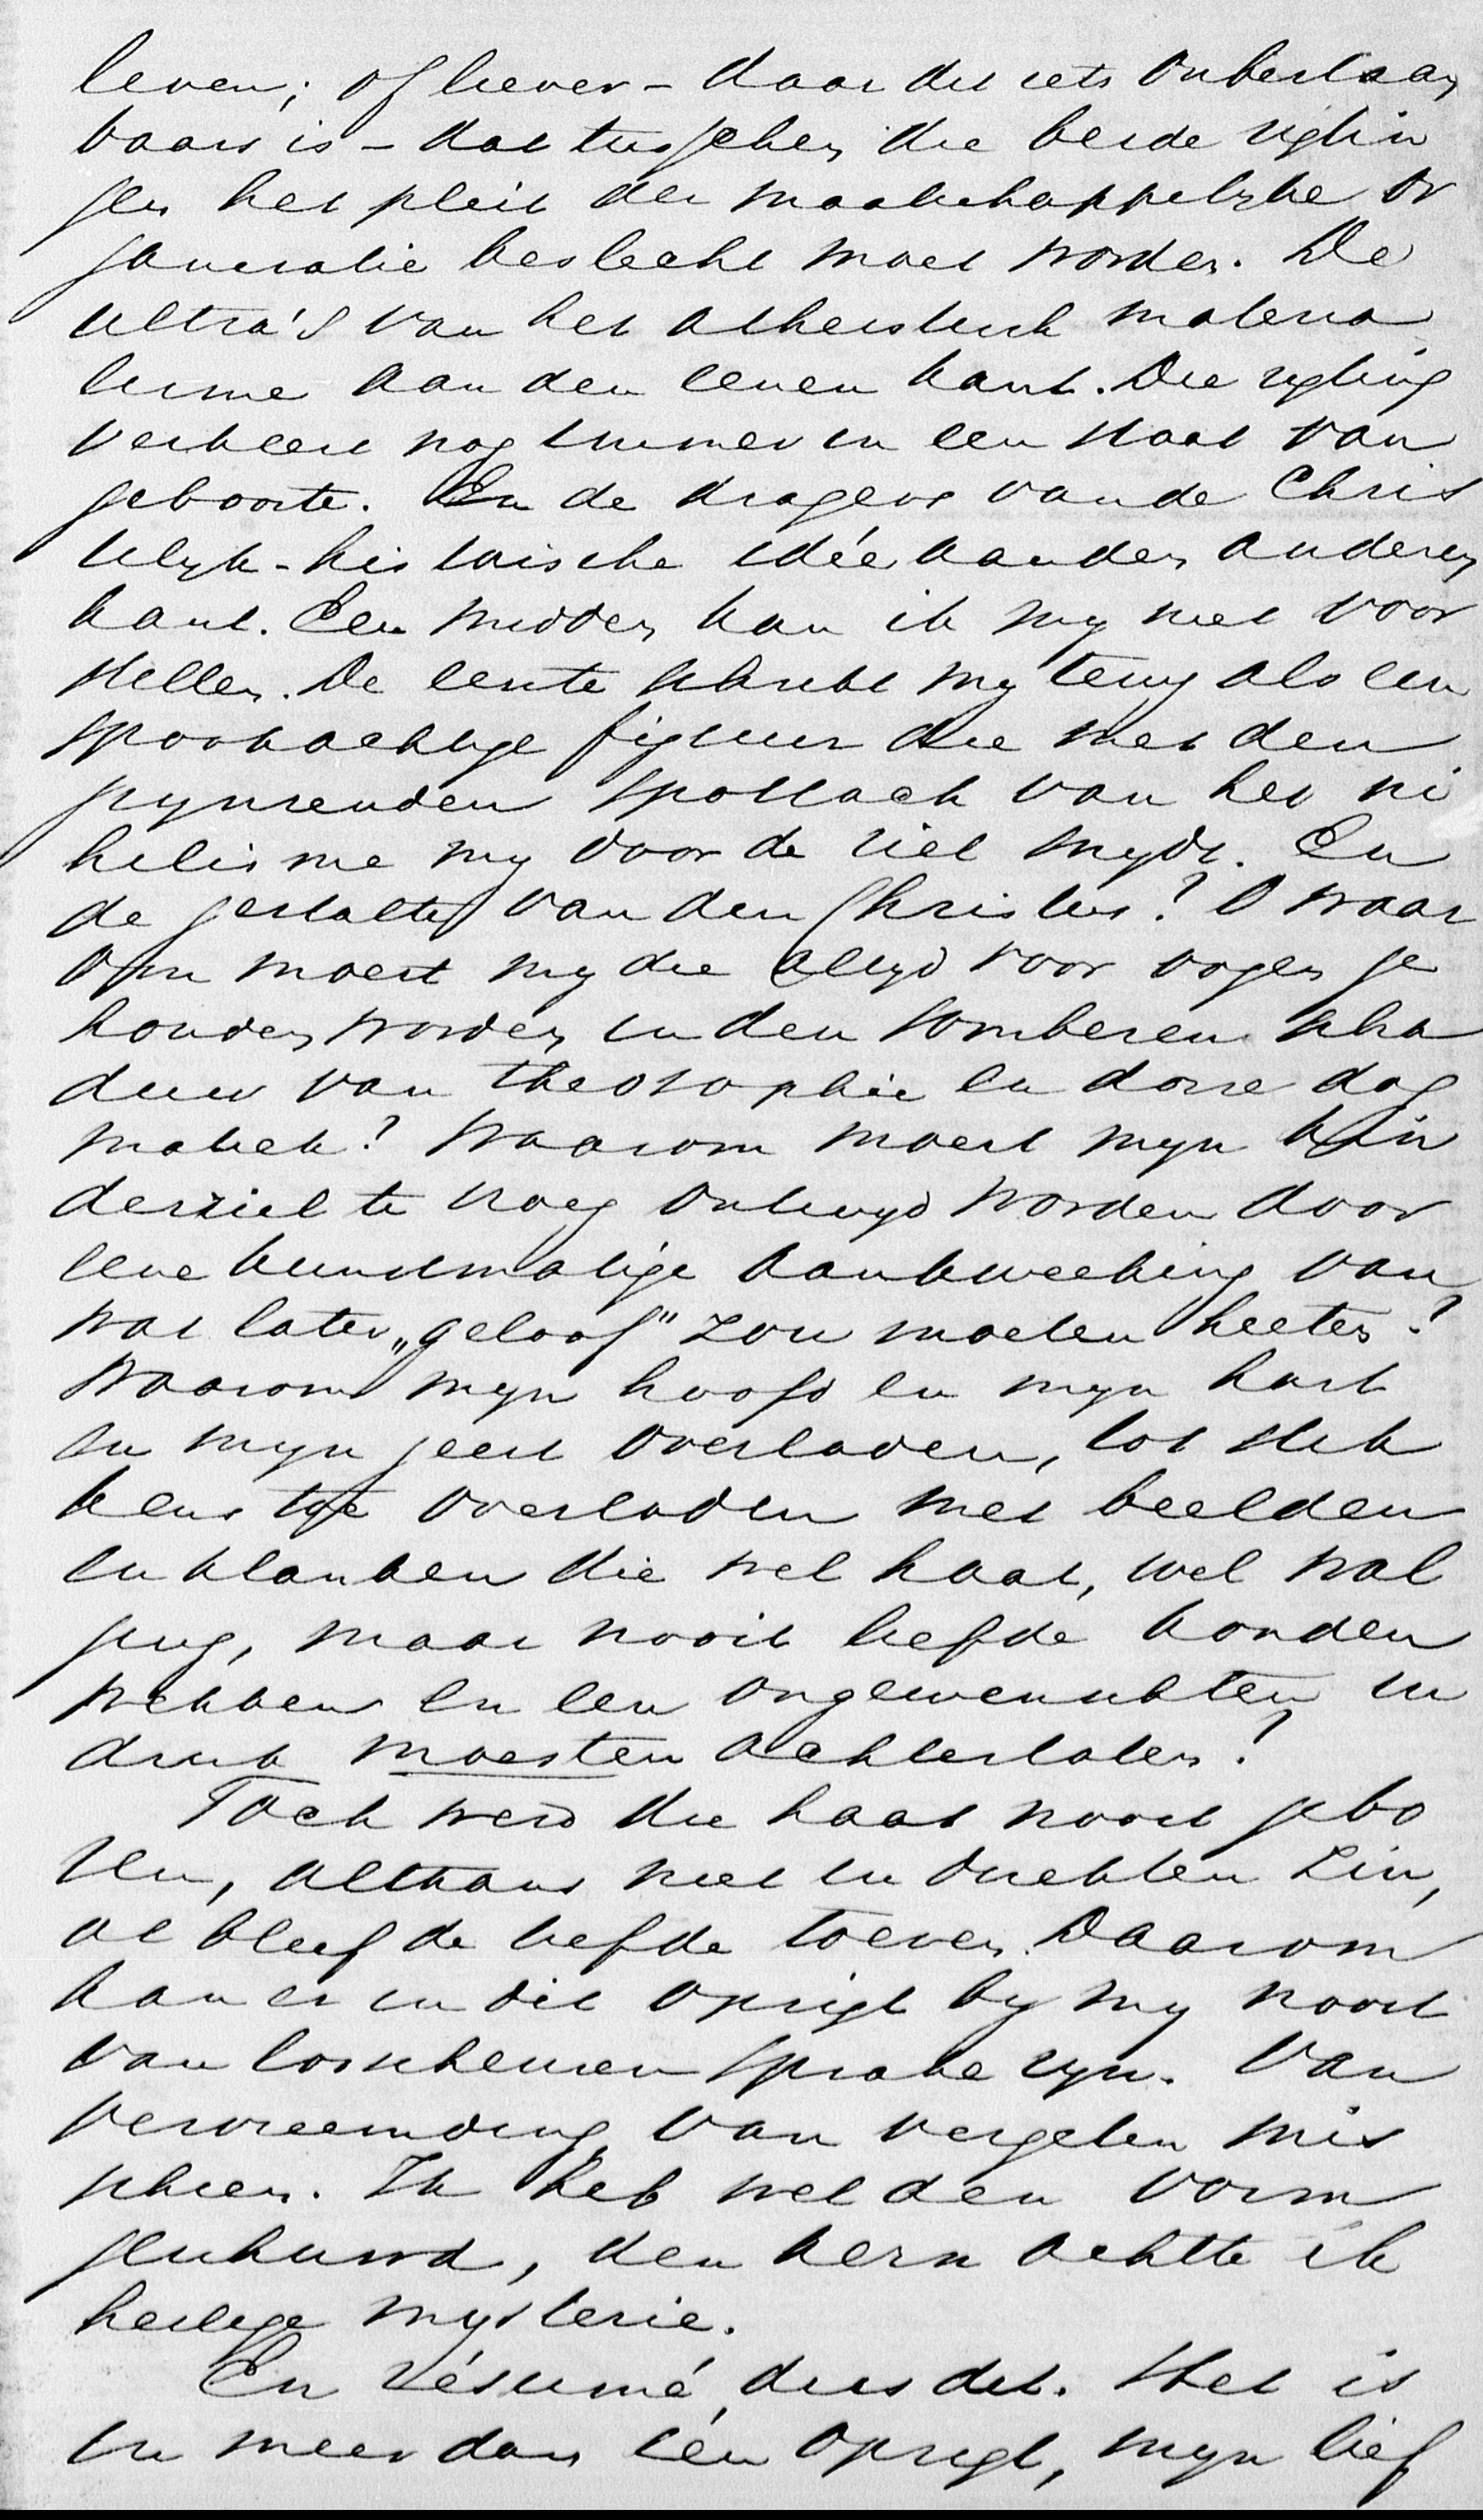 leven; of liever – daar dit iets onbestaan
baars is – dat tusschen die beide rigtin
gen het pleit der maatschappelyke or
ganisatie beslecht moet worden. De
ultra's van het atheistisch materia
lisme aan den eenen kant. Die rigting
verkeert nog immer in een staat van
geboorte. En de dragers van de Chris
telyk-historische idée aan den anderen
kant. Een midden kan ik my niet voor
stellen. De eerste schrikt my terug als een
spookachtige figuur die met den
grynzenden spotlach van het ni
hilisme my door de ziel snydt. En
de gestalte van den Christus? O waar
om moest my die altyd voor oogen ge
houden worden in den somberen scha
duw van theosophie en dorre dog
matiek? Waarom moest myn kin
derziel te vroeg ontwyd worden door
eene kunstmatige aankweeking van
wat later „geloof" zou moeten heeten?
Waarom myn hoofd en myn hart
en myn geest overladen, tot stik
kens toe overladen met beelden
en klanken die wel haat, wel wal
ging, maar nooit liefde konden
wekken en een ongewenschten in
druk moesten achterlaten?
Toch werd die haat nooit gebo
ren, althans niet in duchten zin,
al bleef de liefde toeven. Daarom
kan er in dit opzigt by my nooit
van losscheuren sprake zyn. Van
vervreemding, van vergeten mis
schien. Ik heb wel den vorm
geschuwd, den kern achtte ik
heilige mysterie.
En résumé, dus dit. Het is
in meer dan één opzigt, myn lief